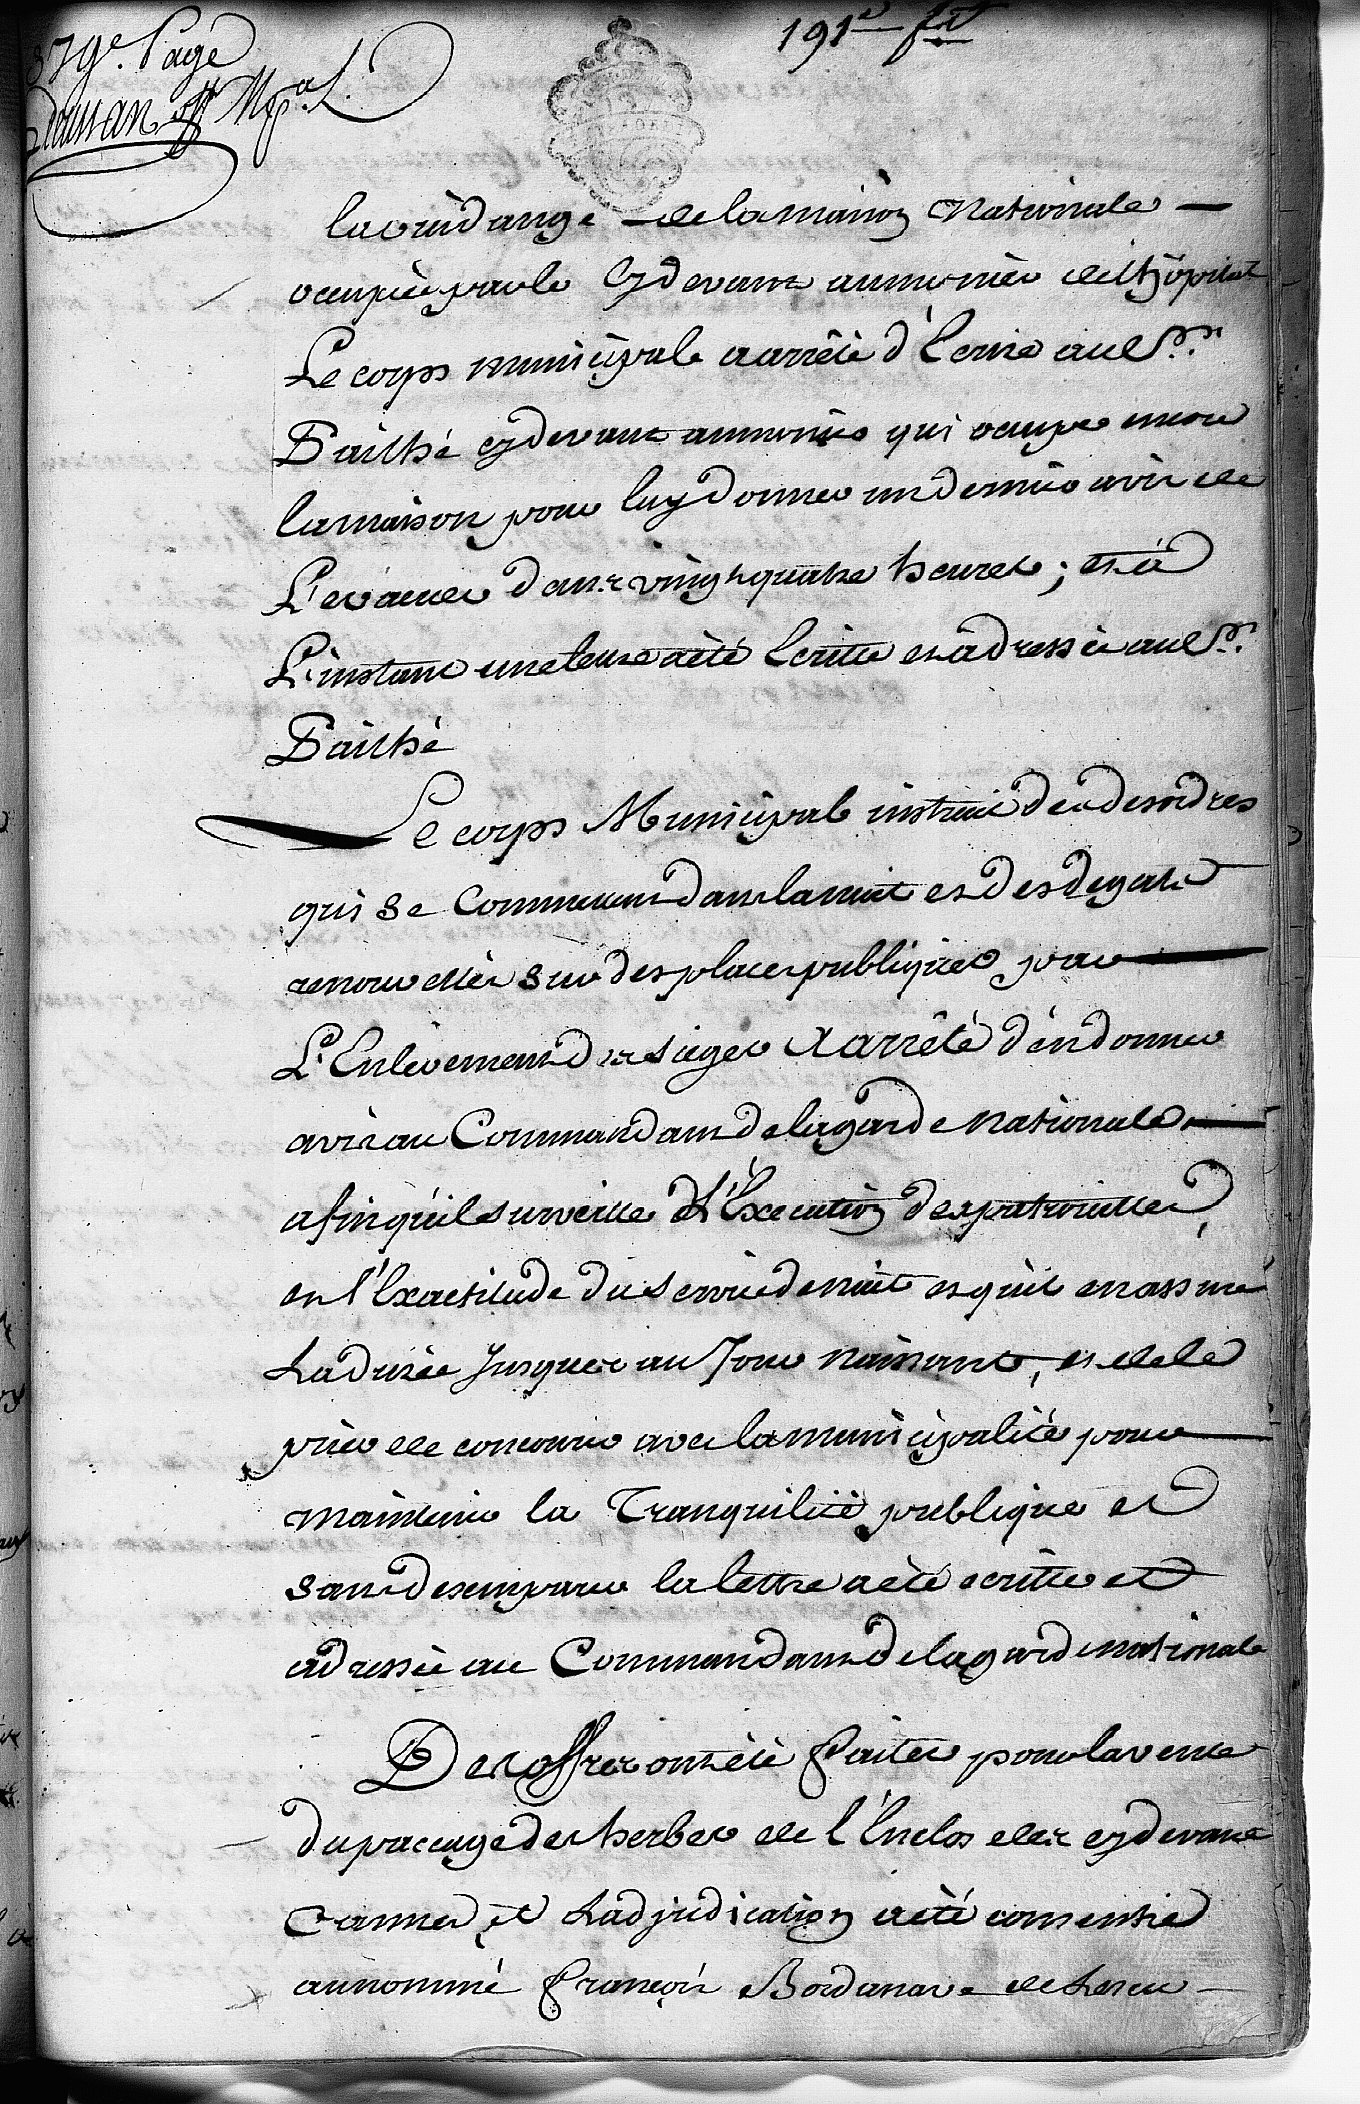 379.e Page
191.e f.t
la vuidange de la maison Nationale
occupée par le cydevant aumonier de l'hôpital
Le corps municipale a arrêté d'Ecrire au S.r
Pailhé cydevant aumonier qui occupe encore
la maison pour luy donner un dernier avis de
L'evacuer dans vingt quatre heures ; et à
L'instant une lettre a été Ecritte et adressée au S.r
Pailhé
Le corps Municipale instruit des desordres
qui se Commettent dans la nuit et des degats
renouvellés sur des places publiques pour
L'Enlevement des sieges A arrêté d'en donner
avis au Commandant de la garde Nationale
afin qu'il surveille L'Execution des patrouilles
et l'Exactitude du service de nuit et qu'il en assure
La durée Jusques au Jour naissant, et de le
prier de concourir avec la municipalité pour
maintenir la Tranquilité publique et
sans desemparer la lettre a été ecritte et
adressée au Commandant de la garde nationale
Des offres ont été faites pour la vente
du paccage des herbes de l'Enclos des cydevant
Carmes et Ladjudication a été consentie
au nommé François Bordanave de Lescu